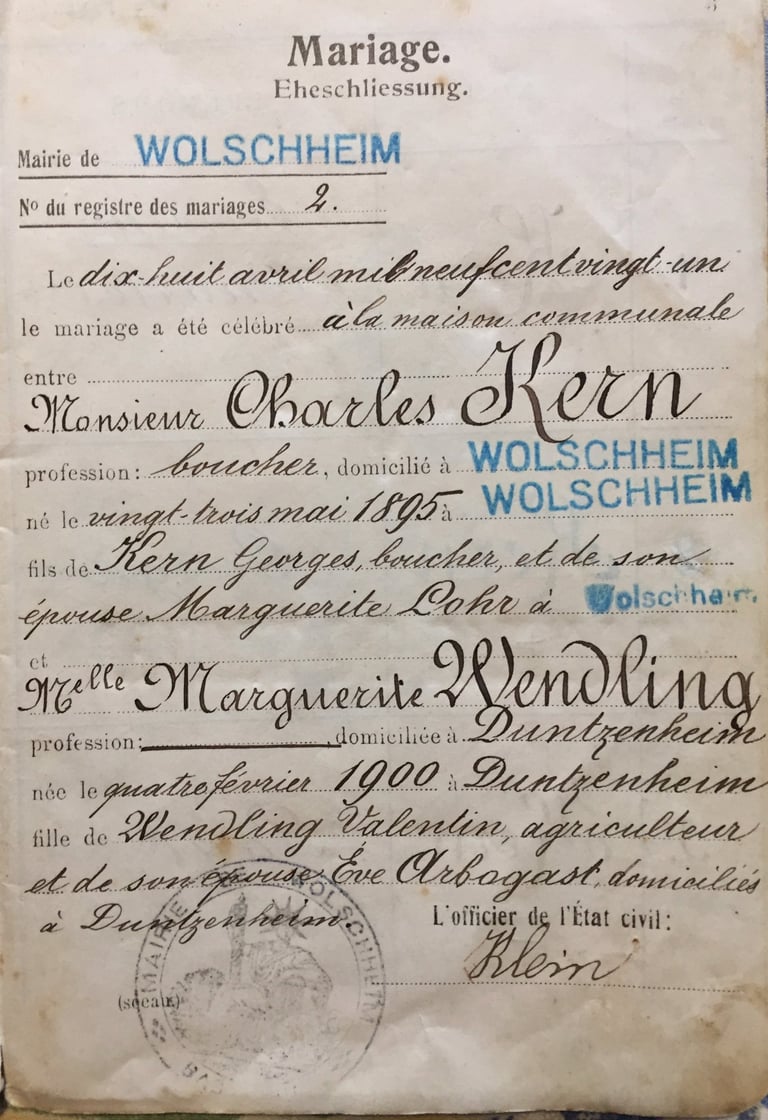 Mariage.
Eheschliessung.
Mairie de WOLSCHHEIM
No du registre des mariages 2.
Le dix-huit avril mil neuf cent vingt-un
le mariage a été célébré à la maison communale
entre
Monsieur Charles Kern
profession: boucher, domicilié à WOLSCHHEIM
né le vingt-trois mai 1895 à WOLSCHHEIM
fils de Kern Georges, boucher, et de son
épouse Marguerite Lohr à Wolschheim
et
Melle Marguerite Wendling
profession: domiciliée à Duntzenheim
née le quatre février 1900 à Duntzenheim
fille de Wendling Valentin, agriculteur
et de son épouse Ève Arbogast, domiciliés
à Duntzenheim.
L'officier de l'État civil:
Klein
(sceau)
MAIRIE DE WOLSCHHEIM